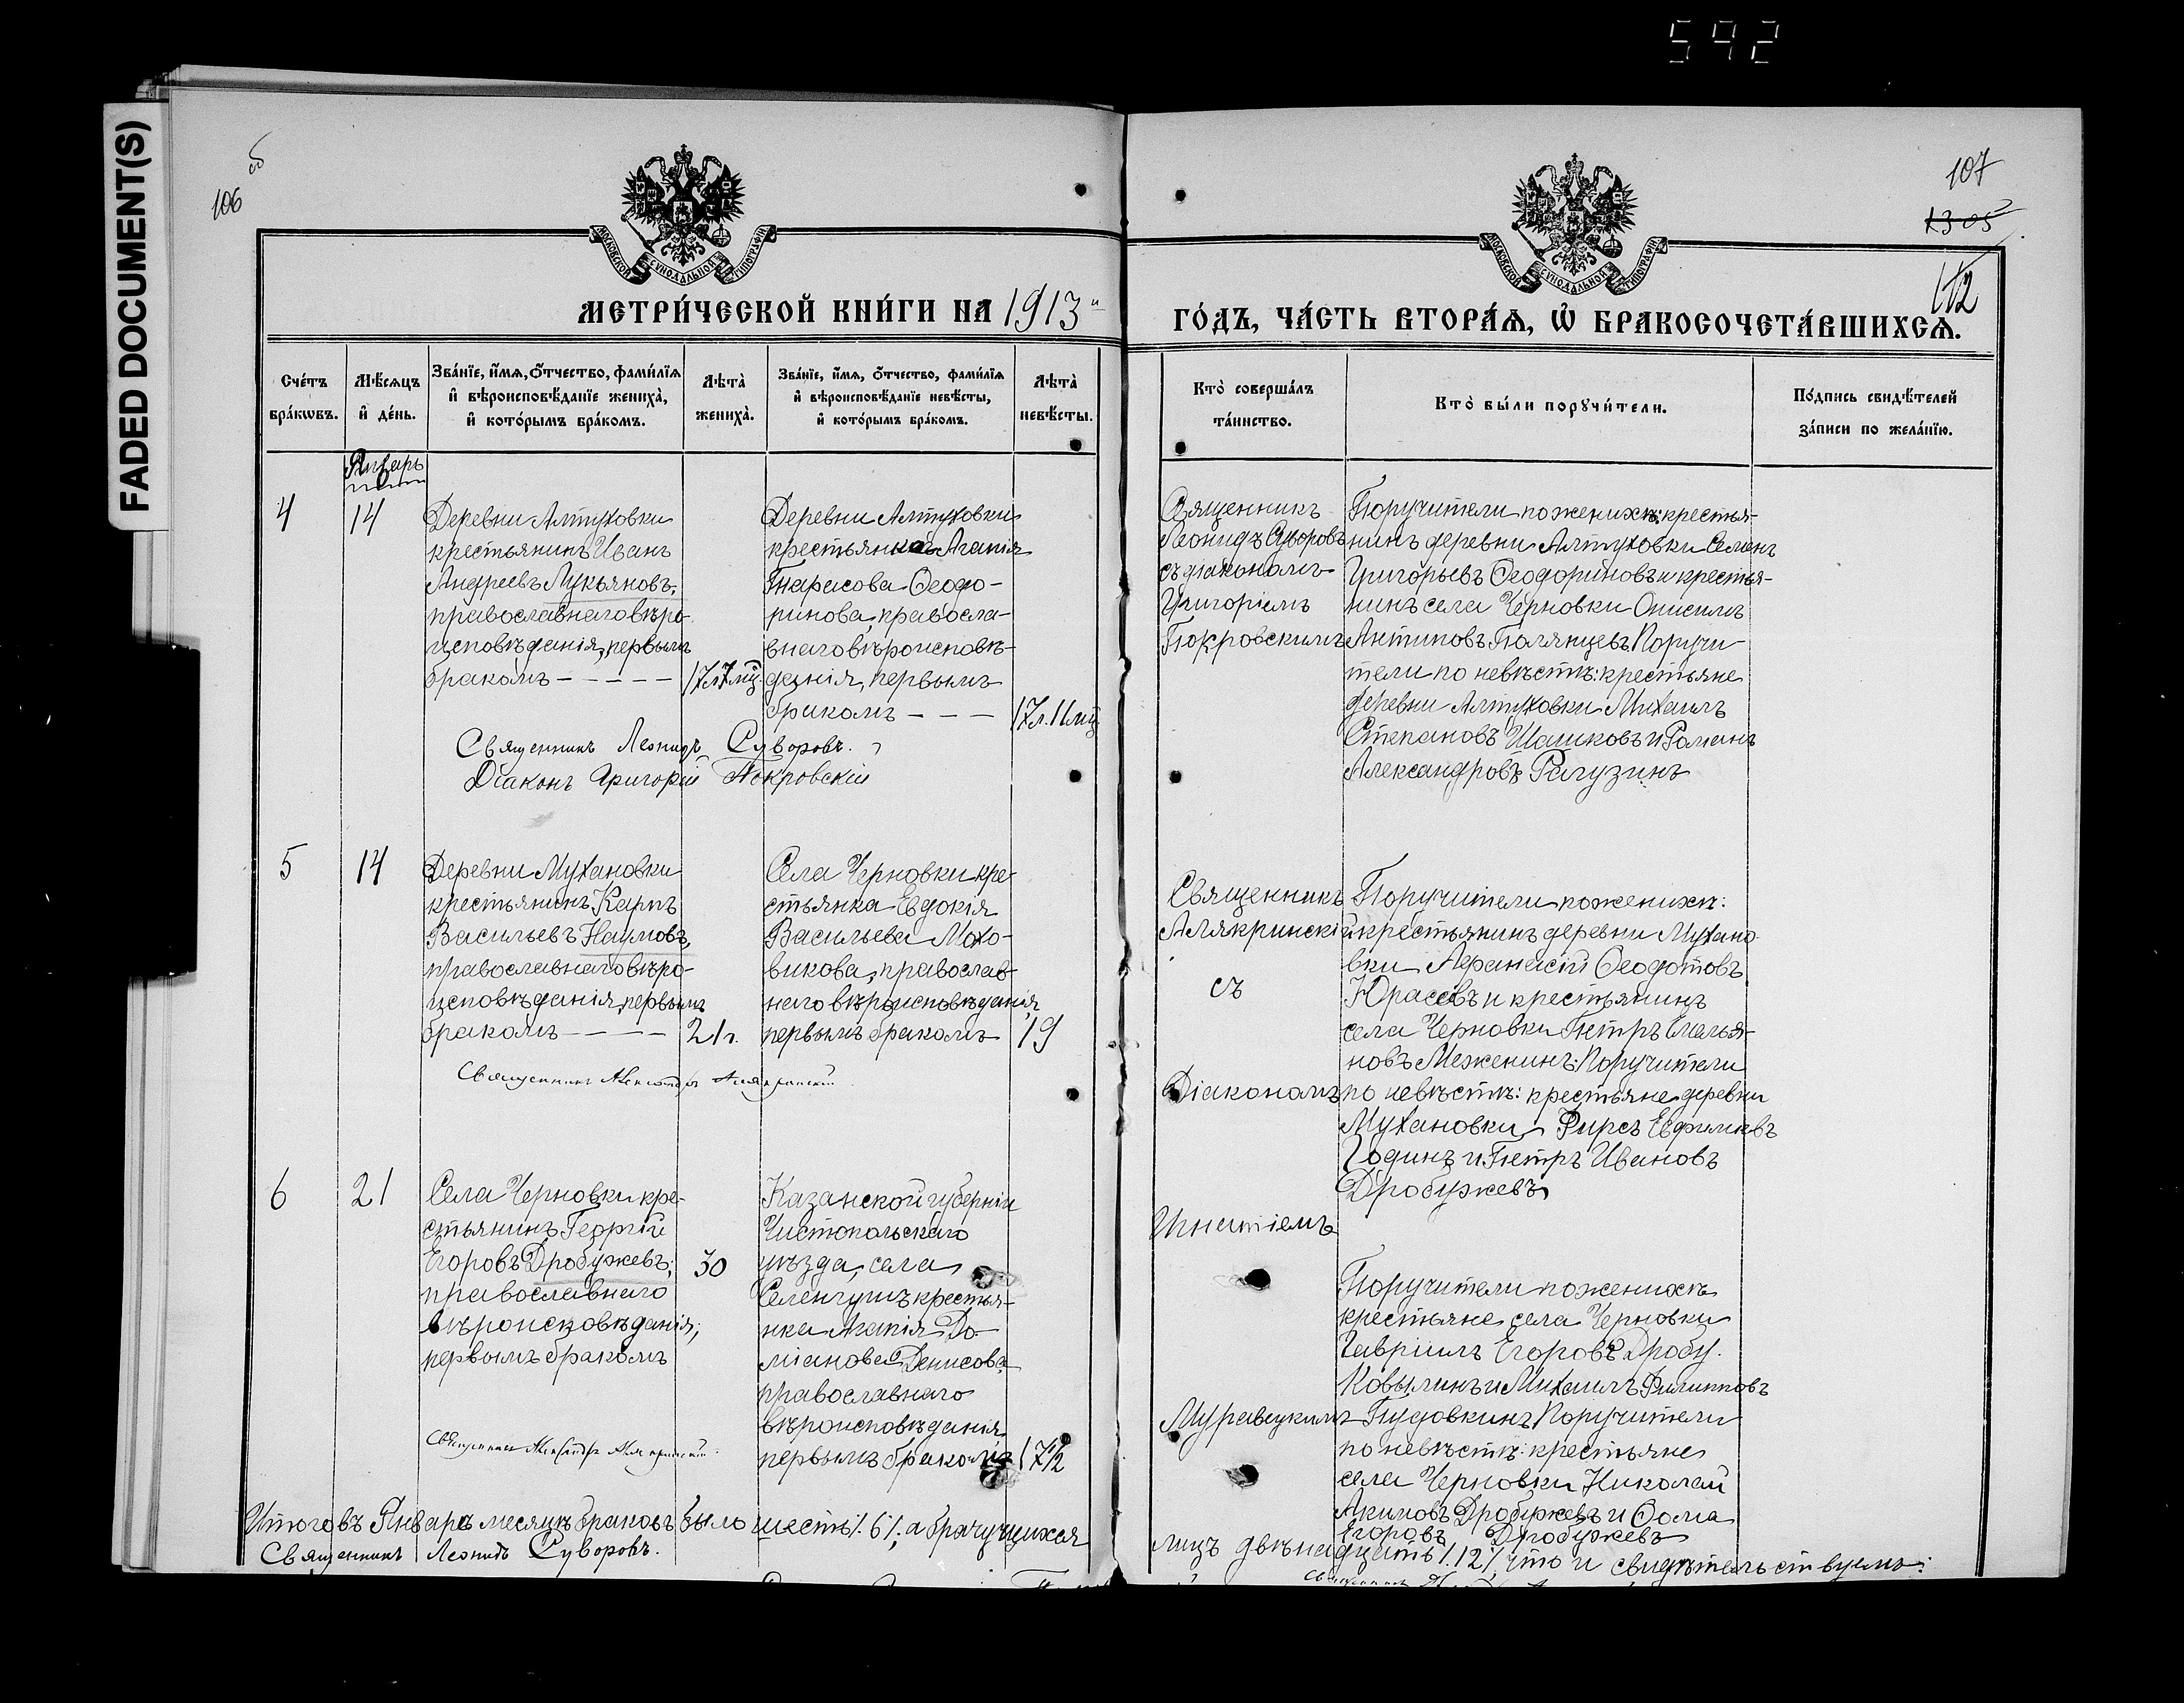 592
FADED DOCUMENT(S)
106 об
107
1305
112
МОСКОВСКОЙ СѴНОДАЛЬНОЙ ТИПОГРАФІИ
МОСКОВСКОЙ СѴНОДАЛЬНОЙ ТИПОГРАФІИ
МЕТРИ́ЧЕСКОЙ КНИ́ГИ НА 1913й
ГО́ДЪ, ЧА́СТЬ ВТОРА́Ѧ, Ѽ БРАКОСОЧЕТА́ВШИХСѦ.
Сче́тъ
бра́кѡвъ.
Мѣ́сѧцъ
и҆ де́нь.
Зва́нїе, и҆́мѧ, ѻ҆́тчество, фами́лїѧ
и҆ вѣроисповѣ́данїе жениха̀,
и҆ кото́рымъ бра́комъ.
Лѣта̀
жениха̀.
Зва́нїе, и҆́мѧ, ѻ҆́тчество, фами́лїѧ
и҆ вѣроисповѣ́данїе невѣ́сты,
и҆ кото́рымъ бра́комъ.
Лѣта̀
невѣ́сты.
Кто̀ соверша́лъ
та́инство.
Кто̀ бы́ли порꙋчи́тели.
По́дпись свидѣ́телей
за́писи по жела́нїю.
Январь
4
14
Деревни Алтуховки
крестьянинъ Иванъ
Андреевъ Лукьяновъ,
православнаго вѣро-
исповѣданія, первымъ
бракомъ – – – – –
17 л 7 мц.
Деревни Алтуховки
крестьянка Агапія
Тарасова Ѳеодо-
ринова, правосла-
внаго вѣроисповѣ-
данія, первымъ
бракомъ – – –
17 л. 11 мц
Священникъ Леонидъ Суворовъ.
Діаконъ Григорій Покровскій
Священникъ
Леонидъ Суворовъ
съ діакономъ
Григоріемъ
Покровскимъ
Поручители по женихѣ: крестья-
нинъ деревни Алтуховки Семенъ
Григорьевъ Ѳеодориновъ и крестья-
нинъ села Черновки Онисимъ
Антиповъ Полянцевъ Поручи-
тели по невѣстѣ: крестьяне
деревни Алтуховки Михаилъ
Степановъ Шашковъ и Романъ
Александровъ Рагузинъ
5
14
Деревни Мухановки
крестьянинъ Карпъ
Васильевъ Наумовъ,
православнаго вѣро-
исповѣданія, первымъ
бракомъ – – – –
21 г.
Села Черновки кре-
стьянка Евдокія
Васильева Мохо-
викова, православ-
наго вѣроисповѣданія,
первымъ бракомъ
19
Священникъ Александръ Алякринскій
Священникъ
Алякринскій
съ
Діакономъ
Игнатіемъ
Муравецкимъ
Поручители по женихѣ:
крестьянинъ деревни Мухано-
вки Афанасій Ѳеодотовъ
Юрасовъ и крестьянинъ
села Черновки Петръ Емелья-
новъ Меженинъ: Поручители
по невѣстѣ: крестьяне деревни
Мухановки Фирсъ Евфимовъ
Годинъ и Петръ Ивановъ
Дробужевъ
6
21
Села Черновки кре-
стьянинъ Георгій
Егоровъ Дробужевъ;
православнаго
вѣроисповѣданія;
первымъ бракомъ
30
Казанской губерніи
Чистопольскаго
уѣзда, села
Селенгушъ крестья-
нка Агапія До-
міанова Денисова
православнаго
вѣроисповѣданія
первымъ бракомъ
17 1/2
Священникъ Александръ Алякринскій
Поручители по женихѣ
крестьяне села Черновки
Гавріилъ Егоровъ Дробу.
Ковылинъ и Михаилъ Филипповъ
Пудовкинъ Поручители
по невѣстѣ: крестьяне
села Черновки Николай
Акимовъ Дробужевъ и Ѳома
Егоровъ Дробужевъ
Итого въ Январѣ месяцѣ браковъ было шесть /. 6 /.; а брачущихся
лицъ двѣнадцать /. 12 /. что и свидѣтельствуемъ:
Священникъ Леонидъ Суворовъ.